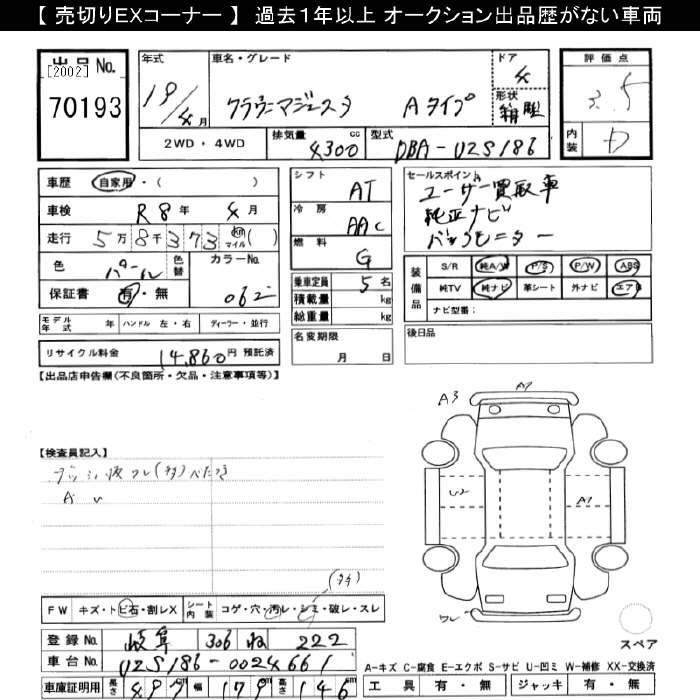 【 売切りEXコーナー 】 過去１年以上 オークション出品歴がない車両
出品 No.
[2002]
70193
年式
19/4月
車名・グレード
クラウンマジェスタ Aタイプ
ドア
4
形状
箱型
2WD・4WD
排気量
4300cc
型式
DBA-UZS186
評価点
3.5
内装
D
車歴 自家用・( )
車検 R8年 4月
走行 5万8千373 km マイル( )
色 パール
色替
カラーNo. 062
保証書 有・無
モデル年式 年 ハンドル 左・右 ディーラー・並行
リサイクル料金 14,860円 預託済
シフト AT
冷房 AAC
燃料 G
乗車定員 5名
積載量 kg
総重量 kg
名変期限
月 日
セールスポイント
ユーザー買取車
純正ナビ
バックモニター
装備品
S/R 純A/W P/S P/W ABS
純TV 純ナビ 革シート 外ナビ エアB
ナビ型番：
後日品
【出品店申告欄(不良箇所・欠品・注意事項等)】
【検査員記入】
A U
A3
A7
U2
A1
ワレ
(多)
FW キズ・トビ石・割レX
シート内装 コゲ・穴・汚レ・シミ・破レ・スレ
登録 No. 岐阜 306 ね 222
車台 No. UZS186-0024661
車庫証明用 長さ 495cm 幅 179cm 高さ 146cm
スペア
A-キズ C-腐食 E-エクボ S-サビ U-凹ミ W-補修 XX-交換済
工具 有・無 ジャッキ 有・無